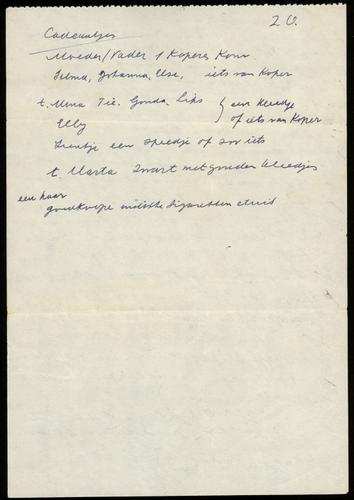 20.
Cadeautjes
Moeder/Vader 1 Koperen Kom
Selma, Johanna, Else, iets van Koper
t. Mina Tie. Gonda, Lips } een kleedje
Elly of iets van Koper
Leentje een speedje of zoo iets
t. Marta Zwart met gouden kleedjes
een paar
goedkoope indische Sigaretten etuis